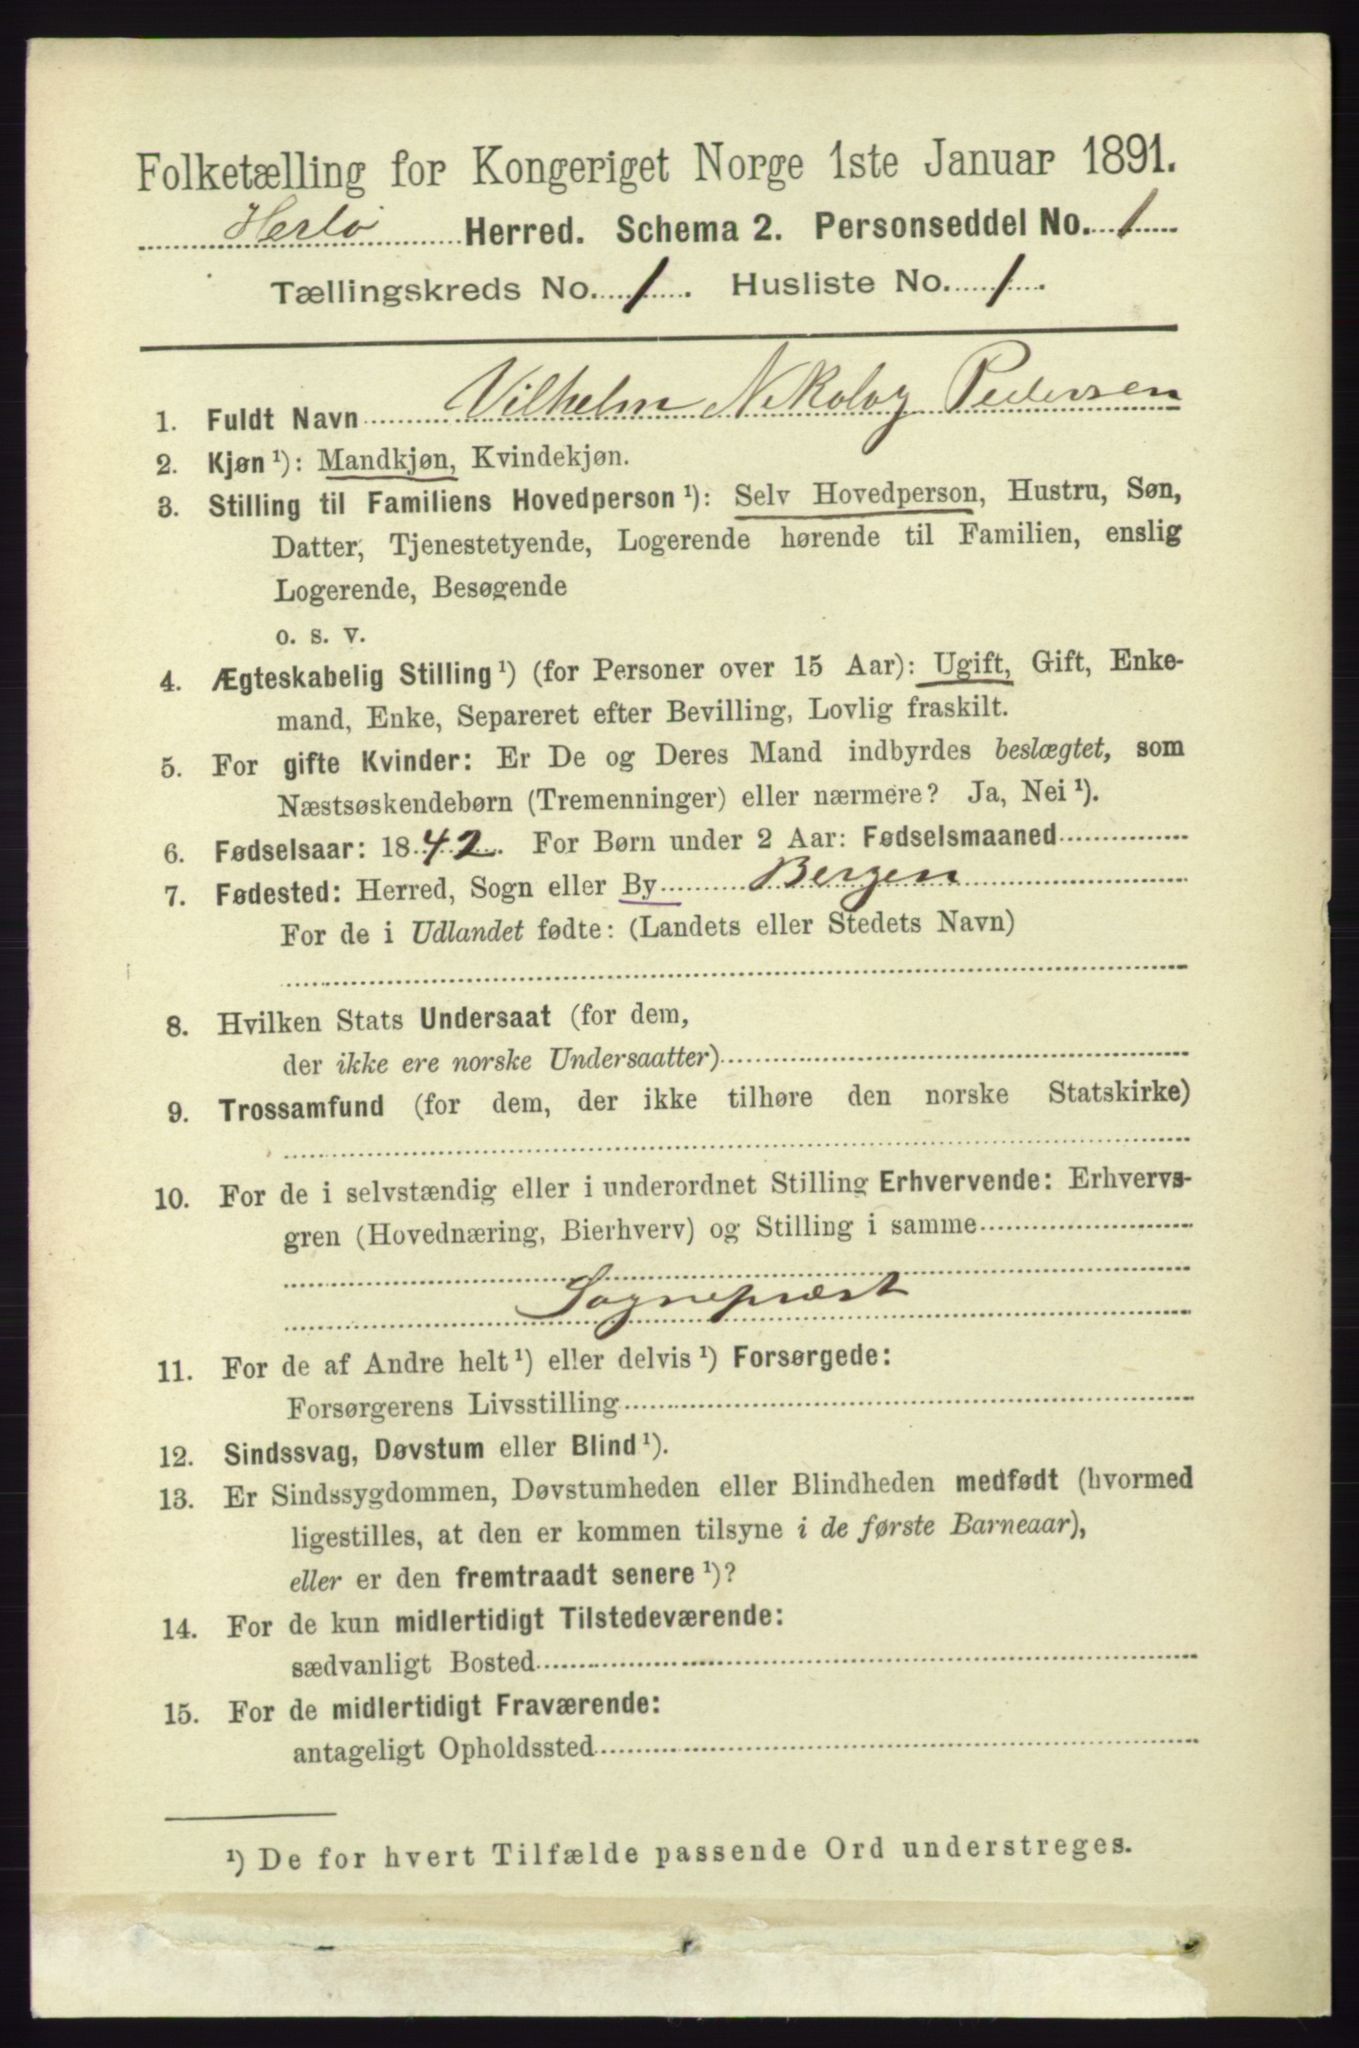 Folketælling for Kongeriget Norge 1ste Januar 1891.
Herlø Herred. Schema 2. Personseddel No. 1
Tællingskreds No. 1. Husliste No. 1.
1. Fuldt Navn Vilhelm Nikolay Pedersen
2. Kjøn¹): Mandkjøn, Kvindekjøn.
3. Stilling til Familiens Hovedperson¹): Selv Hovedperson, Hustru, Søn,
Datter, Tjenestetyende, Logerende hørende til Familien, enslig
Logerende, Besøgende
o. s. v.
4. Ægteskabelig Stilling¹) (for Personer over 15 Aar): Ugift, Gift, Enke-
mand, Enke, Separeret efter Bevilling, Lovlig fraskilt.
5. For gifte Kvinder: Er De og Deres Mand indbyrdes beslægtet, som
Næstsøskendebørn (Tremenninger) eller nærmere? Ja, Nei¹).
6. Fødselsaar: 1842. For Børn under 2 Aar: Fødselsmaaned
7. Fødested: Herred, Sogn eller By Bergen
For de i Udlandet fødte: (Landets eller Stedets Navn)
8. Hvilken Stats Undersaat (for dem,
der ikke ere norske Undersaatter)
9. Trossamfund (for dem, der ikke tilhøre den norske Statskirke)
10. For de i selvstændig eller i underordnet Stilling Erhvervende: Erhvervs-
gren (Hovednæring, Bierhverv) og Stilling i samme
Sognepræst
11. For de af Andre helt¹) eller delvis¹) Forsørgede:
Forsørgerens Livsstilling
12. Sindssvag, Døvstum eller Blind¹).
13. Er Sindssygdommen, Døvstumheden eller Blindheden medfødt (hvormed
ligestilles, at den er kommen tilsyne i de første Barneaar),
eller er den fremtraadt senere¹)?
14. For de kun midlertidigt Tilstedeværende:
sædvanligt Bosted
15. For de midlertidigt Fraværende:
antageligt Opholdssted
¹) De for hvert Tilfælde passende Ord understreges.